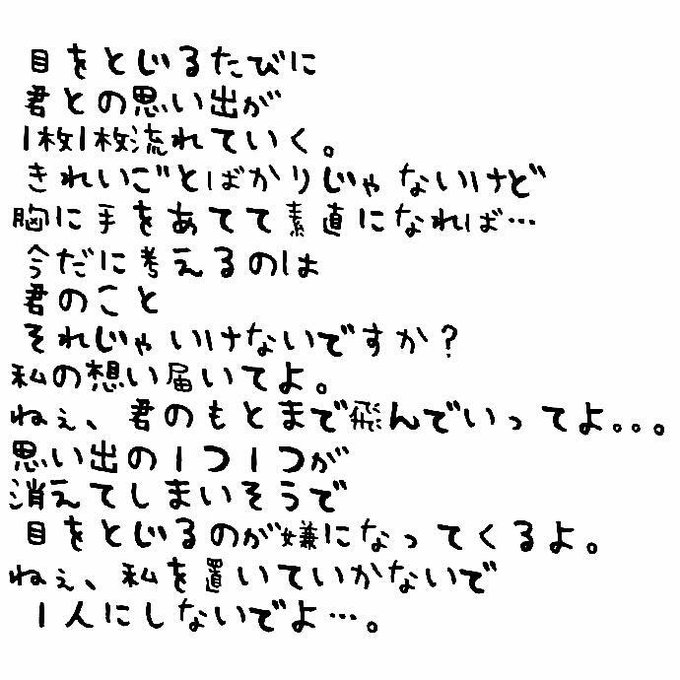 目をとじるたびに
君との思い出が
1枚1枚流れていく。
きれいごとばかりじゃないけど
胸に手をあてて素直になれば…
今だに考えるのは
君のこと
それじゃいけないですか?
私の想い届いてよ。
ねぇ、君のもとまで飛んでいってよ。。。
思い出の1つ1つが
消えてしまいそうで
目をとじるのが嫌になってくるよ。
ねぇ、私を置いていかないで
1人にしないでよ…。